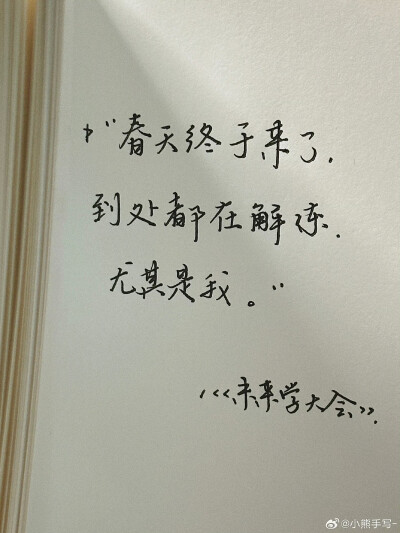 “春天终于来了.
到处都在解冻.
尤其是我。”
《未来学大会》.
@小熊手写-